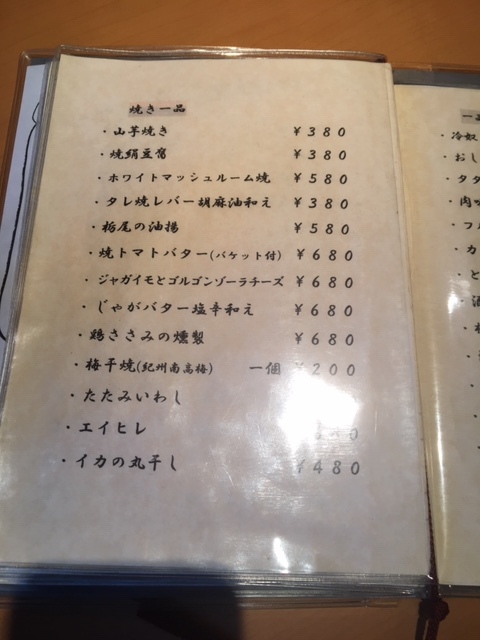 焼き一品
・山芋焼き ￥380
・焼絹豆腐 ￥380
・ホワイトマッシュルーム焼 ￥580
・タレ焼レバー胡麻油和え ￥380
・栃尾の油揚 ￥580
・焼トマトバター(バケット付) ￥680
・ジャガイモとゴルゴンゾーラチーズ ￥680
・じゃがバター塩辛和え ￥680
・鶏ささみの燻製 ￥680
・梅干焼(紀州南高梅) 一個 ￥200
・たたみいわし
・エイヒレ
・イカの丸干し ￥480
・冷奴
・おし
・タタ